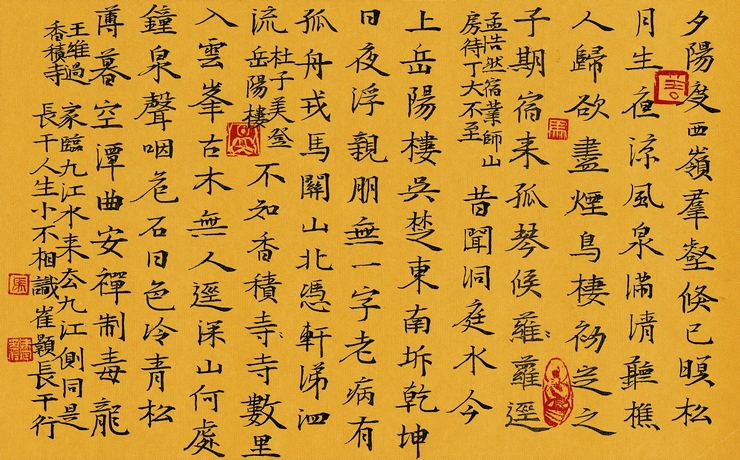 夕陽度西嶺羣壑倏已暝松
月生夜涼風泉滿清聽樵
人歸欲盡煙鳥棲初定之
子期宿来孤琴候蘿蘿逕
孟浩然宿業師山
房待丁大不至
昔聞洞庭水今
上岳陽樓吳楚東南坼乾坤
日夜浮親朋無一字老病有
孤舟戎馬關山北憑軒涕泗
流
杜子美登
岳陽樓
不知香積寺寺數里
入雲峯古木無人逕深山何處
鐘泉聲咽危石日色冷青松
薄暮空潭曲安禪制毒龍
王維過
香積寺
家臨九江水来去九江側同是
長干人生小不相識崔顥長干行